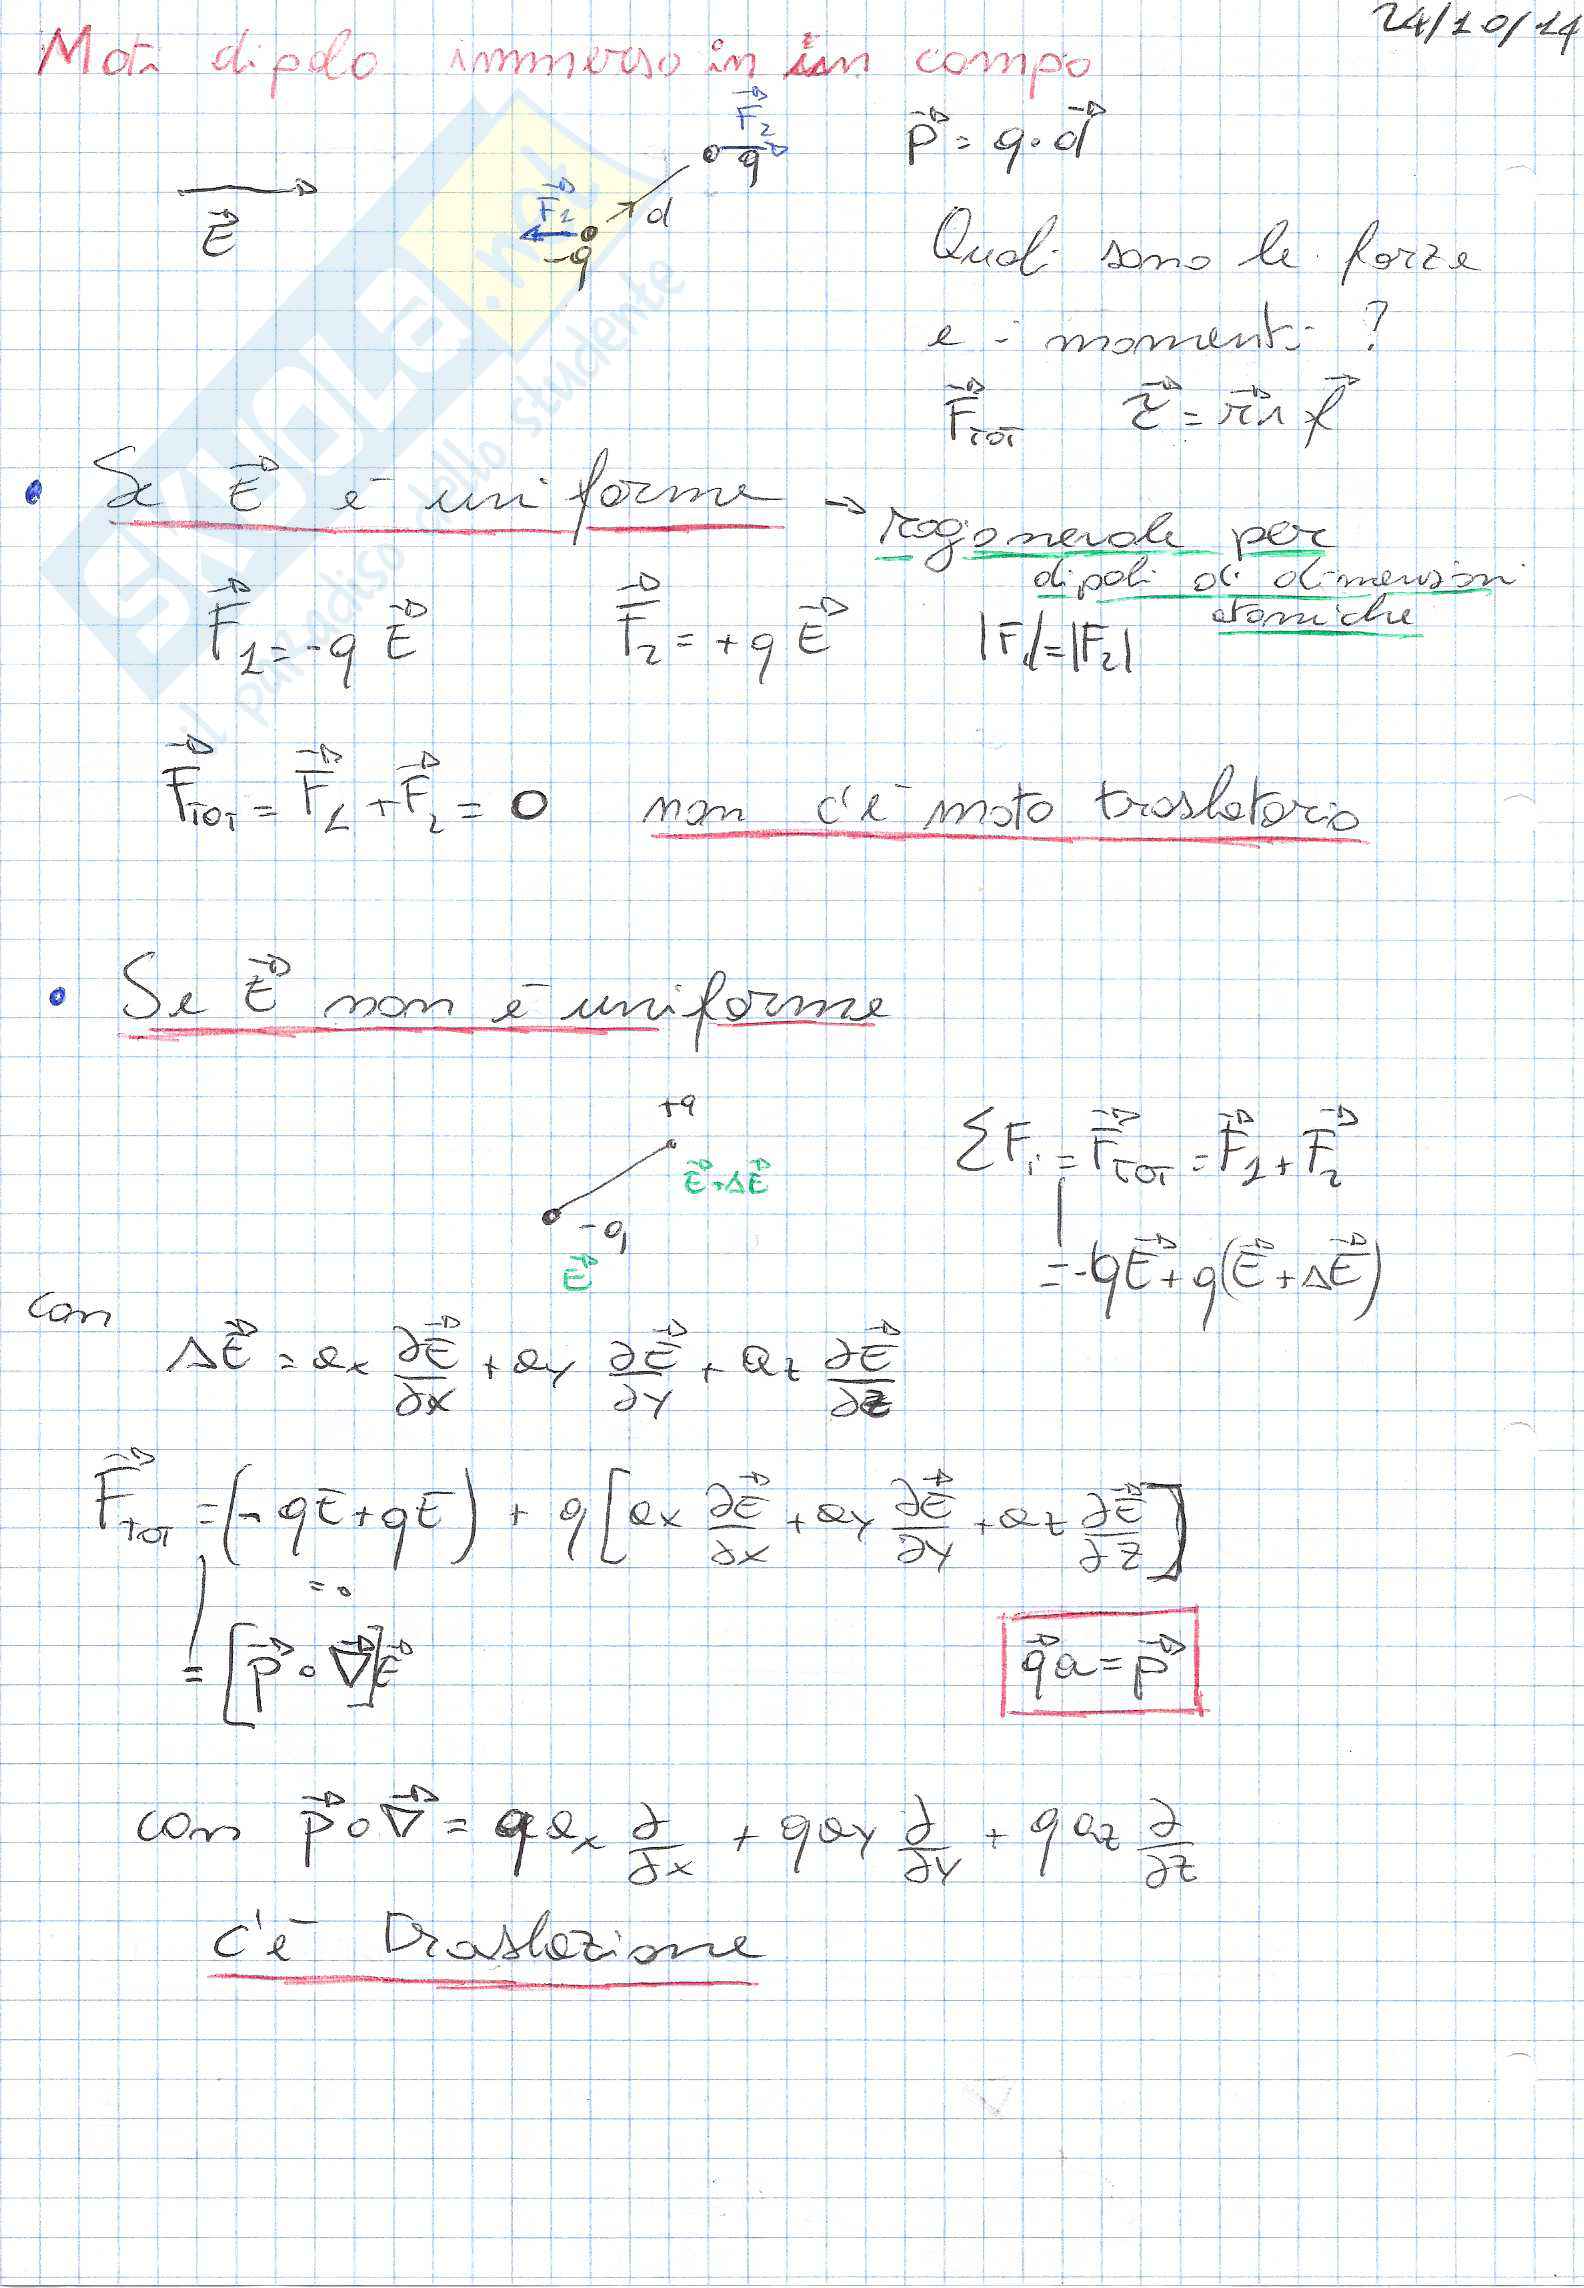 24/10/14
Moti dipolo immerso in un campo
E⃗
F⃗₂
q
F⃗₁
-q
d
p⃗ = q · d⃗
Quali sono le forze
e i momenti ?
F⃗TOT τ⃗ = r⃗ ∧ f⃗
• Se E⃗ è uniforme → ragionevole per
dipoli di dimensioni
atomiche
F⃗₁ = -q E⃗ F⃗₂ = +q E⃗ |F₁| = |F₂|
F⃗TOT = F⃗₁ + F⃗₂ = 0 non c'è moto traslatorio
• Se E⃗ non è uniforme
+q
E⃗+ΔE⃗
-q
E⃗
ΣFi = F⃗TOT = F⃗₁ + F⃗₂
= -qE⃗ + q(E⃗ + ΔE⃗)
con
ΔE⃗ = ax ∂E⃗/∂x + ay ∂E⃗/∂y + az ∂E⃗/∂z
F⃗TOT = (-qE + qE) + q[ax ∂E⃗/∂x + ay ∂E⃗/∂y + az ∂E⃗/∂z]
= 0
= [p⃗ ∘ ∇⃗]E⃗
q⃗a = p⃗
con p⃗ ∘ ∇⃗ = qax ∂/∂x + qay ∂/∂y + qaz ∂/∂z
c'è Traslazione
SKUOLA.net
il paradiso dello studente